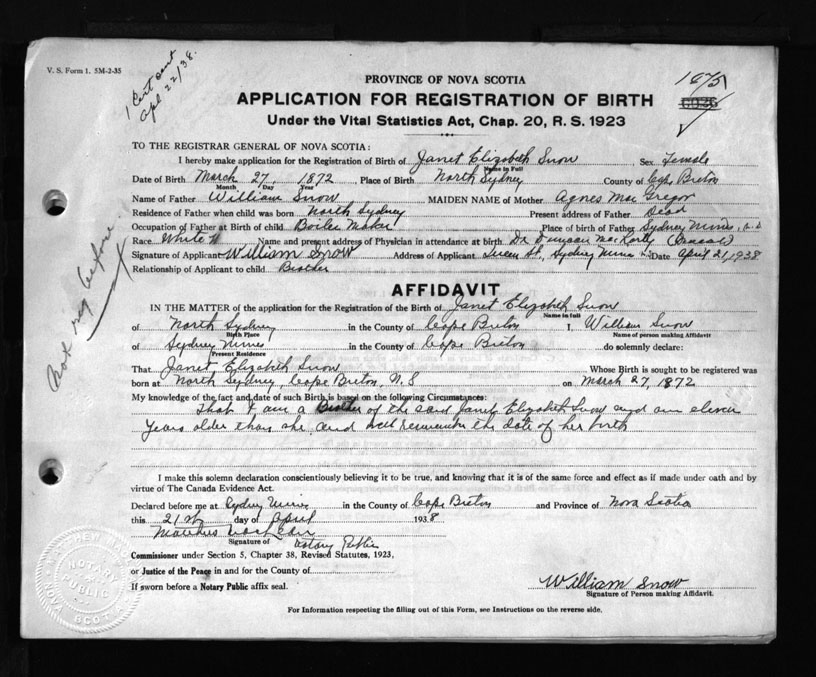 V. S. Form 1. 5M-2-35
1 Cert sent
Apl 22/38.
1675
PROVINCE OF NOVA SCOTIA
APPLICATION FOR REGISTRATION OF BIRTH
Under the Vital Statistics Act, Chap. 20, R. S. 1923
TO THE REGISTRAR GENERAL OF NOVA SCOTIA:
I hereby make application for the Registration of Birth of Janet Elizabeth Snow Sex Female
Name in Full
Date of Birth March 27, 1872 Place of Birth North Sydney County of Cape Breton
Month Day Year
Name of Father William Snow MAIDEN NAME of Mother Agnes MacGregor
Residence of Father when child was born North Sydney Present address of Father Dead
Occupation of Father at Birth of Child Boiler Maker Place of birth of Father Sydney Mines, N.S
Race White Name and present address of Physician in attendance at birth Dr Duncan (Deceased)
Signature of Applicant William Snow Address of Applicant Queen St., Sydney Mines Date April 21, 1938
Relationship of Applicant to child Brother
Book reg before.
AFFIDAVIT
IN THE MATTER of the application for the Registration of the Birth of Janet Elizabeth Snow
Name in full
of North Sydney in the County of Cape Breton I, William Snow
Birth Place Name of person making Affidavit
of Sydney Mines in the County of Cape Breton do solemnly declare:
Present Residence
That Janet Elizabeth Snow Whose Birth is sought to be registered was
born at North Sydney, Cape Breton, N.S on March 27, 1872
My knowledge of the fact and date of such Birth is based on the following Circumstances:
That I am a Brother of the said Janet Elizabeth Snow and am eleven
Years older than she and well remember the date of her birth
I make this solemn declaration conscientiously believing it to be true, and knowing that it is of the same force and effect as if made under oath and by
virtue of The Canada Evidence Act.
Declared before me at Sydney Mines in the County of Cape Breton and Province of Nova Scotia
this 21st day of April 1938
Signature of Notary Public
Commissioner under Section 5, Chapter 38, Revised Statutes, 1923,
or Justice of the Peace in and for the County of
If sworn before a Notary Public affix seal.
NOTARY
PUBLIC
NOVA SCOTIA
William Snow
Signature of Person making Affidavit.
For Information respecting the filling out of this Form, see Instructions on the reverse side.